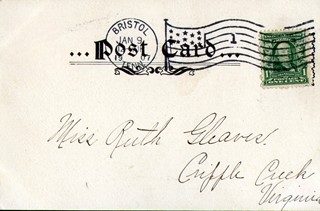 BRISTOL
JAN 9
1907
TENN.
1
...Post Card...
Miss Ruth Gleaves.
Cripple Creek
Virginia